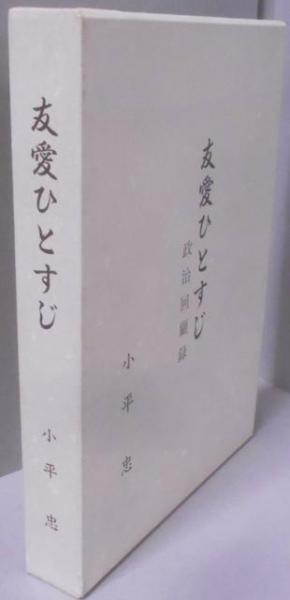 友愛ひとすじ
小平忠
友愛ひとすじ
政治回顧録
小平忠